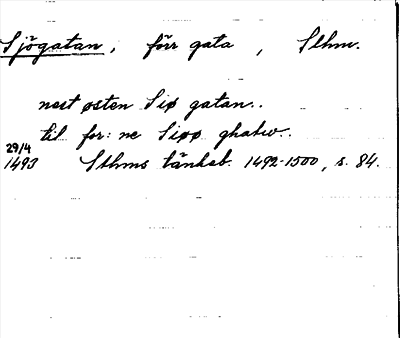 Sjögatan, förr gata, Sthm.
nest østen Siø gatan..
til for: ne Siøø ghatw..
29/4
1493 Sthms tänkeb. 1492-1500, s. 84.